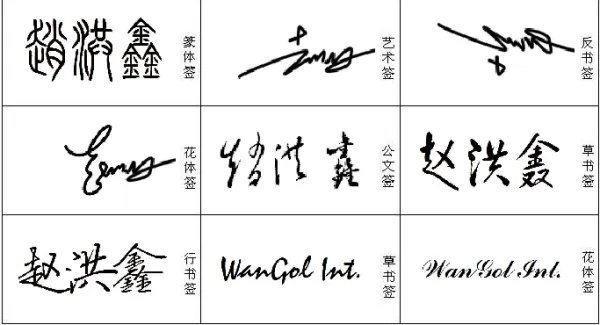 趙洪鑫 篆体签
艺术签
反书签
花体签
趙洪鑫 公文签
赵洪鑫 草书签
赵洪鑫 行书签
WanGol Int. 草书签
WanGol Int. 花体签